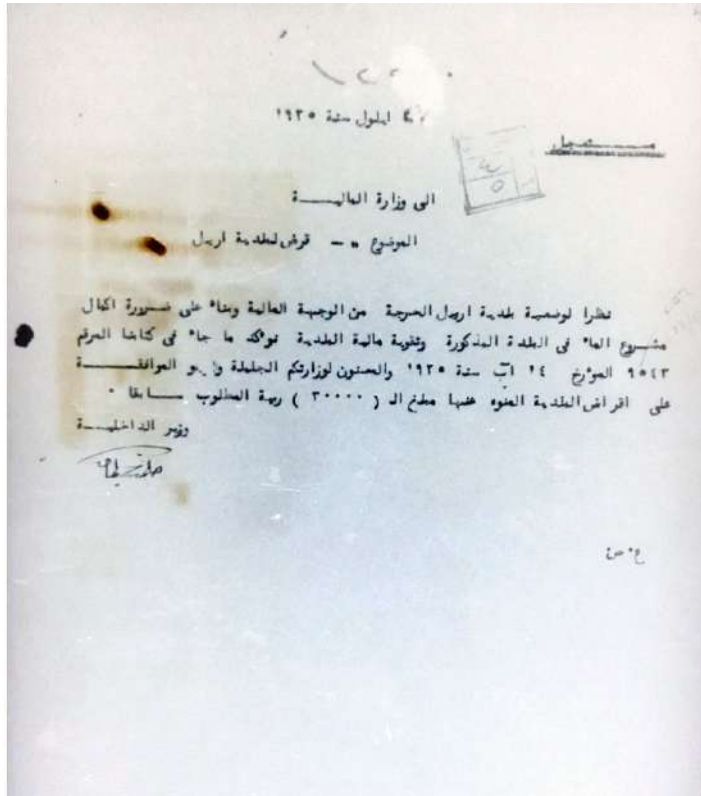 ايلول سنة ١٩٢٥
مستعجل
الى وزارة الماليـــــة
الموضوع :- قرض لبلدية اربيل
نظرا لوضعية بلدية اربيل الحرجة من الوجهة المالية وبناء على ضـرورة اكمال
مشـروع الماء في البلدة المذكورة وتقوية مالية البلدية نؤكد ما جاء في كتابنا المرقم
٩٥٤٣ المؤرخ ١٤ آب سنة ١٩٢٥ والمعنون لوزارتكم الجليلة الموافقـــــة
على اقراض البلدية المنوه عنها مبلغ الـ ( ٣٠٠٠٠ ) ربية المطلوب ســـابقا ٠
وزير الداخليـــــة
ع ٠ س